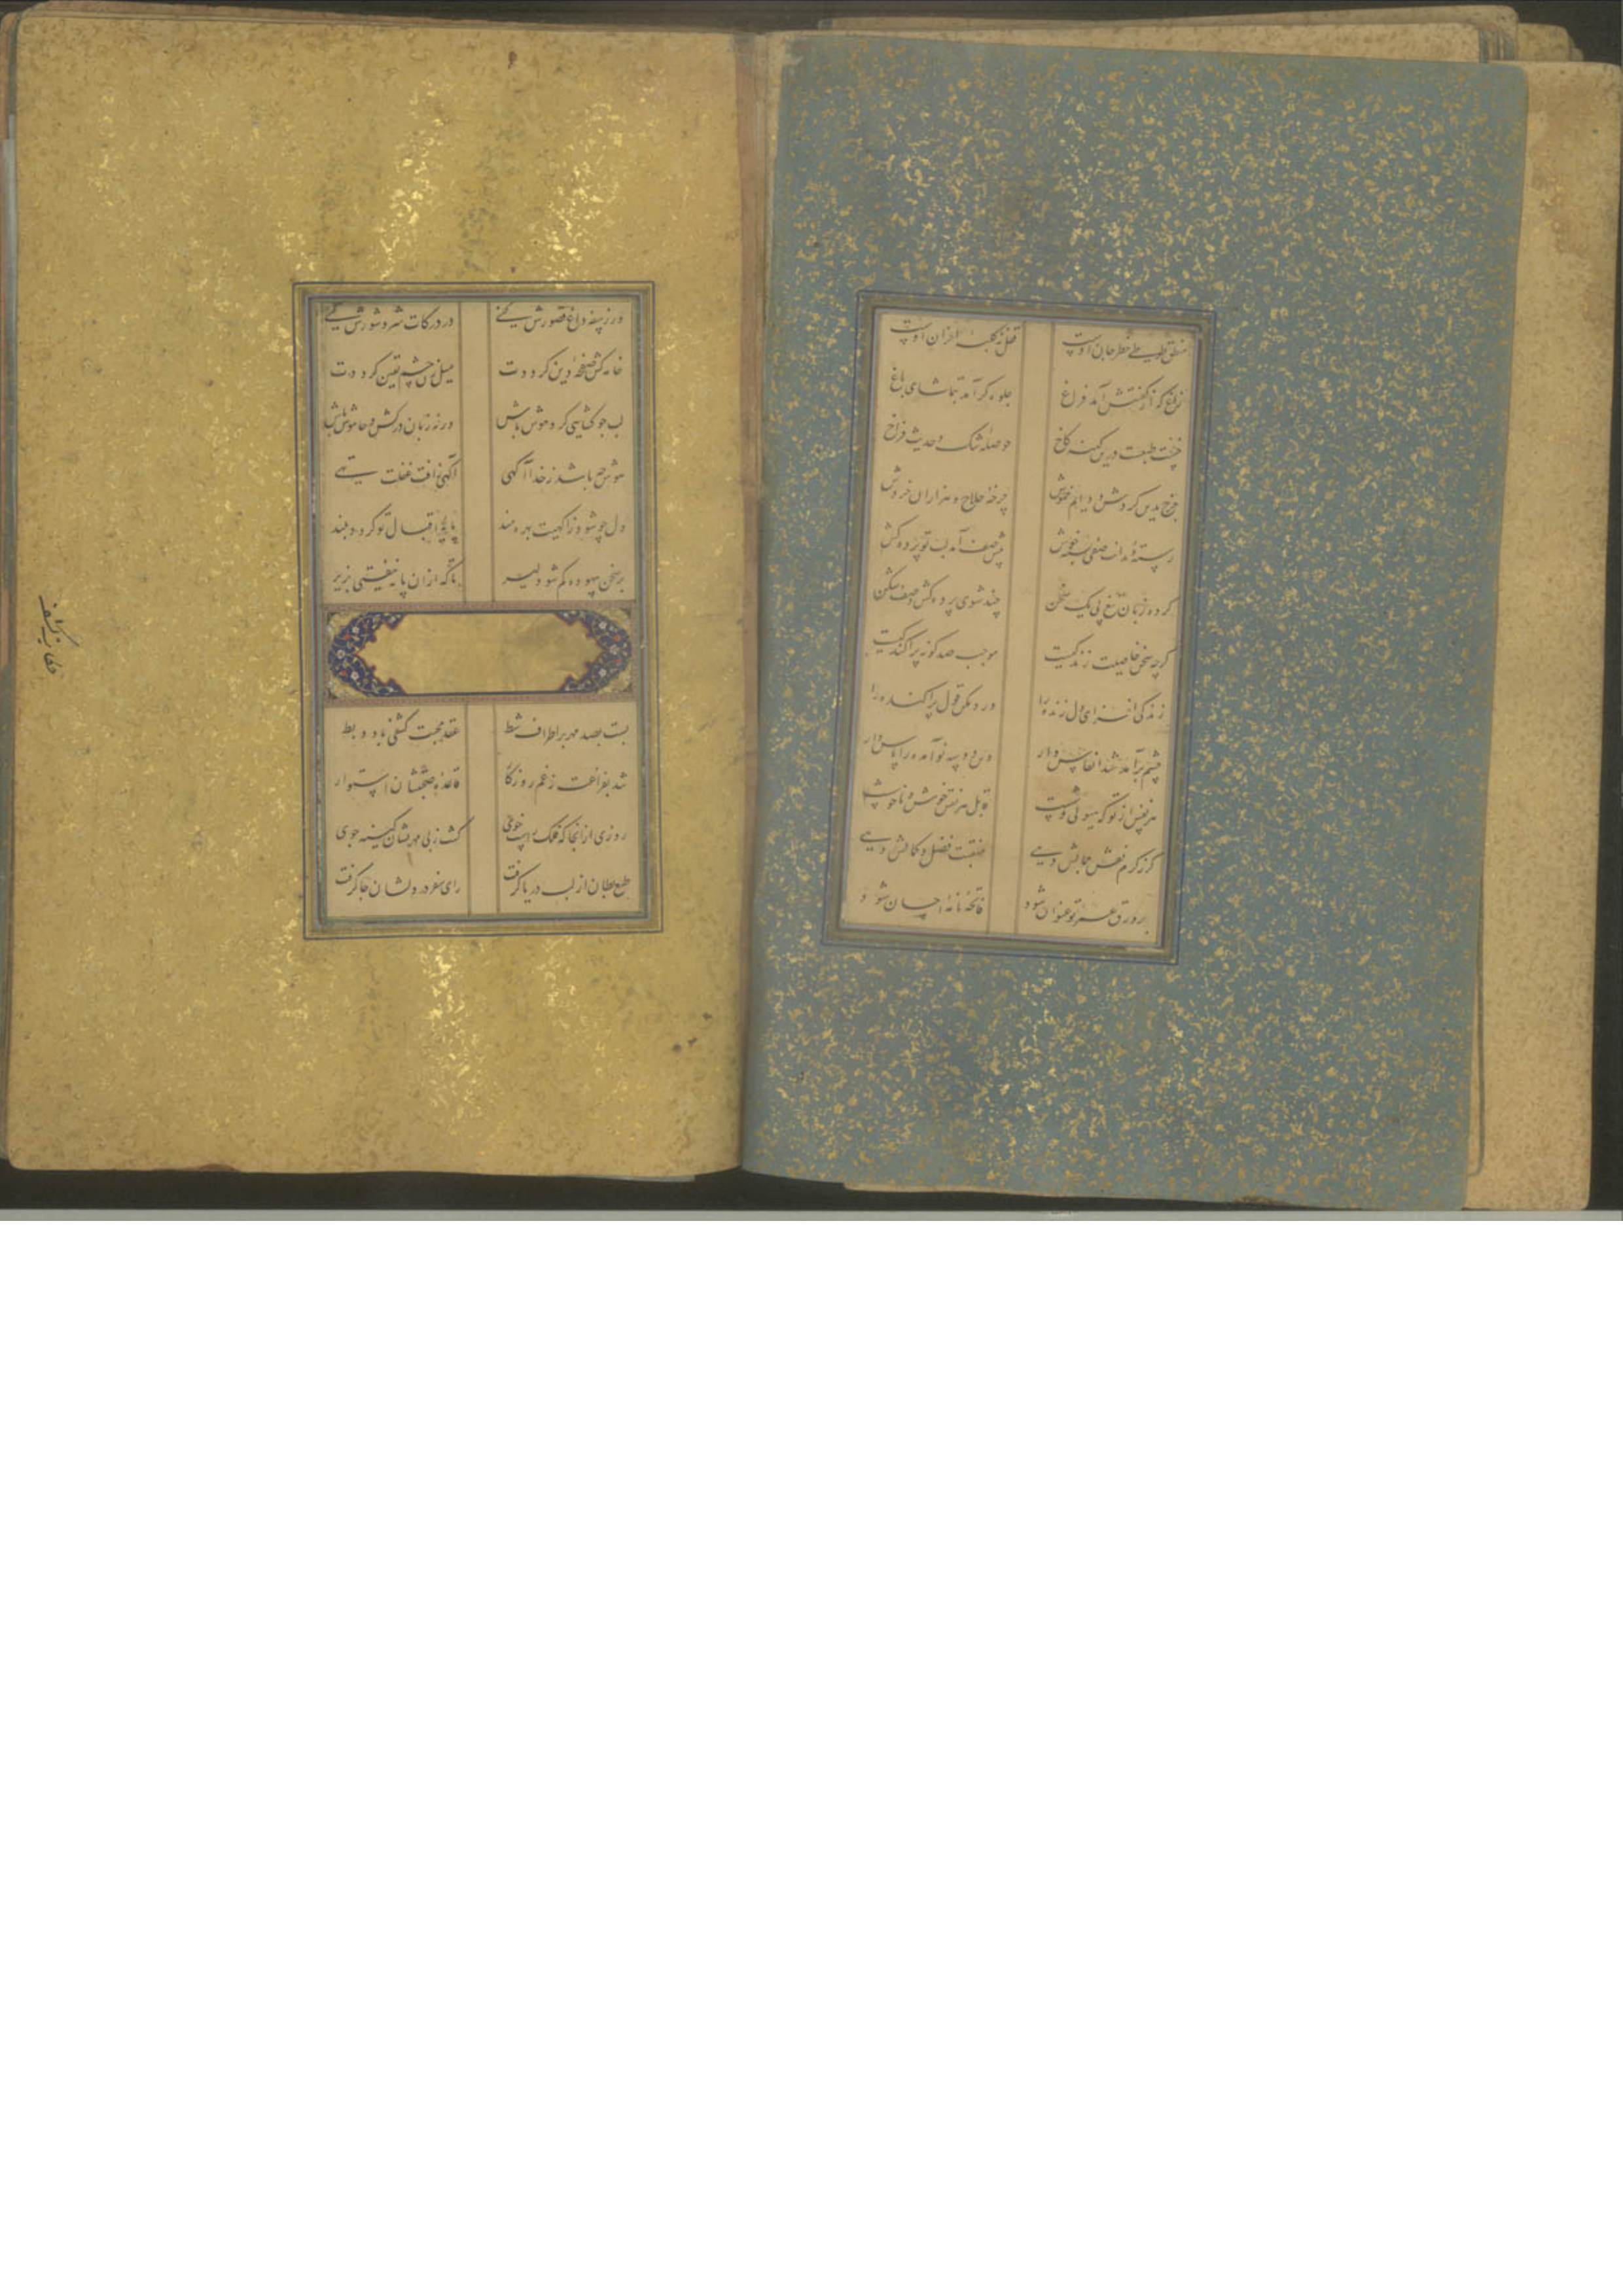 منطق طوطی خطر جان اوست قفل نه کلبه احزان اوست
زاغ که از گفتنش آمد فراغ جلوه گر آمد بتماشای باغ
خست طبیعت درین کهنه کاخ حوصله تنگ و حدیث فراخ
چرخ بدین گردش و دایم خموش چرخه حلاج و هزاران خروش
رسته دندانت صفی بست خوش پیش صف آمد لب تو پرده کش
کرده زبان تیغ پی یک سخن چند شوی پرده کش و صف شکن
گرچه سخن خاصیت زندگیست موجب صد گونه پراکندگیست
زندگی افزای دل زنده را قول پراکنده را
چشم برآمد شد انفاس دار پاس دار
هر نفس از تو که هیولی وشست قابل هر نقش خوش و ناخوشست
گر ز کرم نقش جمالش دهی منقبت فضل و کمالش دهی
بر ورق عمر تو عنوان شود فاتحه نامه احسان شود
ور ز سفه داغ قصورش کنی در درکات شر و شورش کنی
خامه کش صفحه دین گرددت میل کش چشم یقین گرددت
لب چو گشایی گرو هوش باش ورنه زبان درکش و خاموش باش
هوش چه باشد ز خدا آگهی آگهی ز آفت غفلت تهی
دل چو شود ز آگهیت بهره مند پایه اقبال تو گردد بلند
بر سخن بیهوده کم شو دلیر تا که ازان پایه نیفتی بزیر
بست بصد مهر بر اطراف شط عقد محبت کشفی با دو بط
شد بفراغت ز غم روزگار قاعده صحبتشان استوار
روزی ازانجا که فلک راست خوی گشت ز بی مهریشان کینه جوی
طبع بطان از لب دریا گرفت رای سفر در دلشان جا گرفت